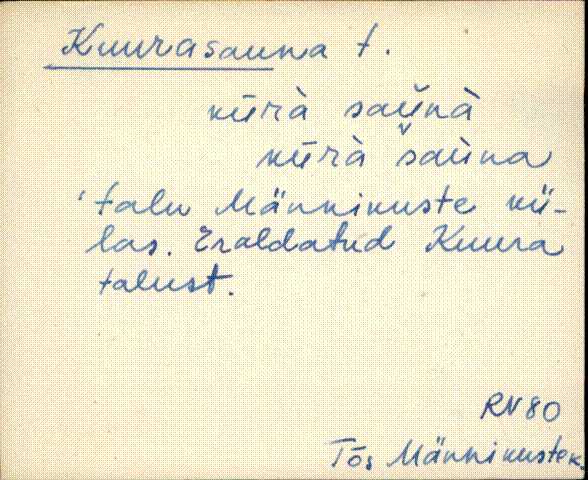 Kuurasauna t.
kūrà saùnà
kūrà saùna
'talu Männikuste kü-
las. Eraldatud Kuura
talust.
RN 80
Tõs Männikuste k.